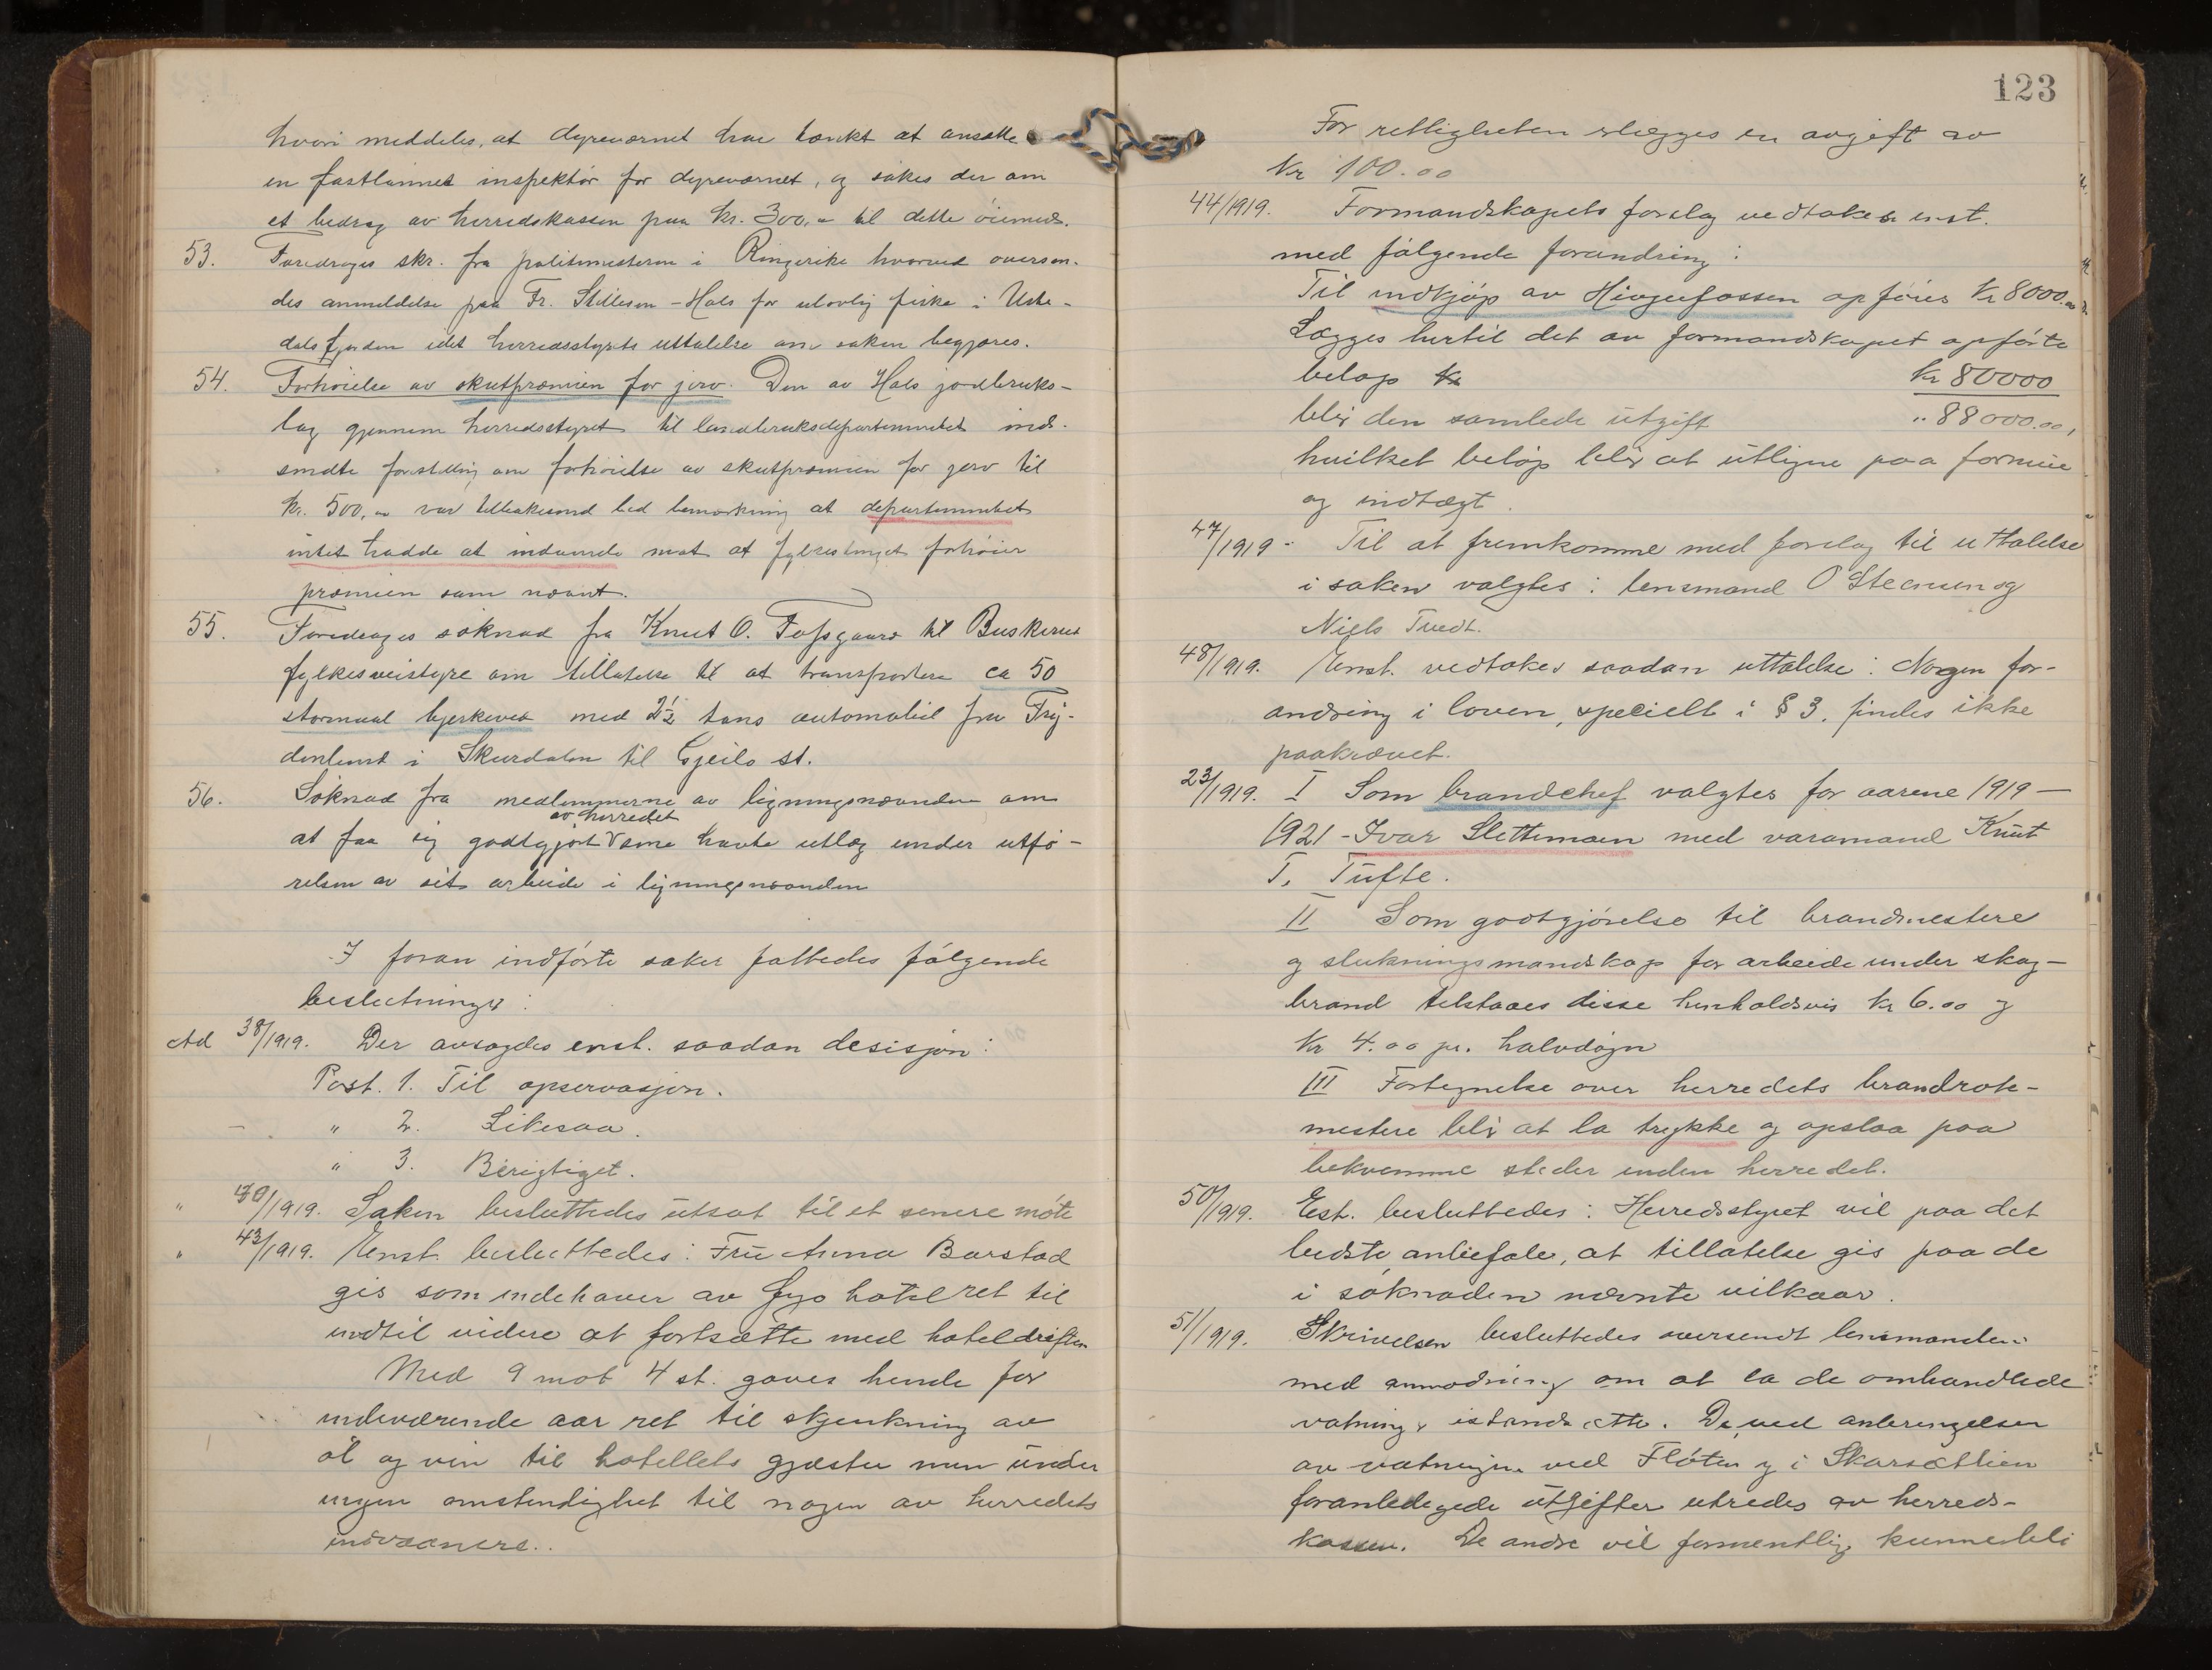 hvori meddeles, at dyreværnet har tænkt at ansætte
en fastlønnet inspektør for dyreværnet, og søkes der om
et bidrag av herredskassen paa kr. 300,- til dette øiemed.
53. Foredrages skr. fra politimesteren i Ringerike hvorved oversen-
des anmeldelse paa Fr. Stillesen - Hals for ulovlig fiske i Uste-
dalsfjorden idet herredsstyrets uttalelse om saken begjæres.
54. Forhøielse av skutpræmien for jerv. Den av Hols jordbruks-
lag gjennem herredsstyret til landbruksdepartementet ind-
sendte forestilling om forhøielse av skutpræmien for jerv til
kr. 500,- var tilbakesend ved bemærkning at departementet
intet hadde at indvende mot at fylkestinget forhøier
præmien som nævnt.
55. Foredrages søknad fra Knut O. Fossgaard til Buskerud
fylkesveistyre om tillatelse til at transportere ca 50
stormaal bjerkeved med 2½ tons automobil fra Fry-
denlund i Skurdalen til Gjeilo st.
56. Søknad fra medlemmerne av ligningsnævnden om
av herredet
at faa sig godtgjort sine havte utlæg under utfø-
relsen av sit arbeide i ligningsnævnden
I foran indførte saker fattedes følgende
beslutninger:
Ad 38/1919. Der avsagdes enst. saadan desisjon:
Post. 1. Til opservasjon.
" 2. Likesaa.
" 3. Berigtiget.
" 40/1919. Saken besluttedes utsat til et senere møte
" 43/1919. Enst. besluttedes: Fru Anna Barstad
gis som indehaver av Fyo hotel ret til
indtil videre at fortsætte med hoteldriften
Med 9 mot 4 st. gaves hende for
indeværende aar ret til skjenkning av
øl og vin til hotellets gjæster men under
ingen omstendighet til nogen av herredets
indvaanere..
123
For rettigheten erlægges en avgift av
Kr 100.00
44/1919. Formandskapets forslag vedtakes enst.
med følgende forandring:
Til indkjøp av Hivjufossen opføres Kr 8000.00
Lægges hertil det av formandskapet opførte
beløp Kr 80000
blir den samlede utgift " 88000.00,
hvilket beløp blir at utligne paa formue
og indtægt.
47/1919 - Til at fremkomme med forslag til uttalelse
i saken valgtes: lensmand O Steensen og
Niels Tvedt.
48/1919. Enst. vedtokes saadan uttalelse: Nogen for-
andring i loven, specielt i § 3. findes ikke
paakrævet.
23/1919. I Som brandchef valgtes for aarene 1919 -
1921 - Ivar Slettemoen med varamand Knut
T. Tufte.
II Som godtgjørelse til brandmestere
og slukningsmandskap for arbeide under skog-
brand tilstaaes disse henholdsvis kr 6.00 og
Kr 4.00 pr. halvdøgn
III Fortegnelse over herredets brandrote-
mestere blir at la trykke og opslaa paa
bekvemme steder inden herredet.
50/1919. Est. besluttedes: Herredsstyret vil paa det
bedste anbefale, at tillatelse gis paa de
i søknaden nævnte vilkaar.
51/1919. Skrivelsen besluttedes oversendt lensmanden
med anmodning om at la de omhandlede
vatninger istandsætte. De ved anbringelsen
av vatningen ved Fløten og i Skarsætlien
foranledigede utgifter utredes av herreds-
kassen. De andre vil formentlig kunne bli